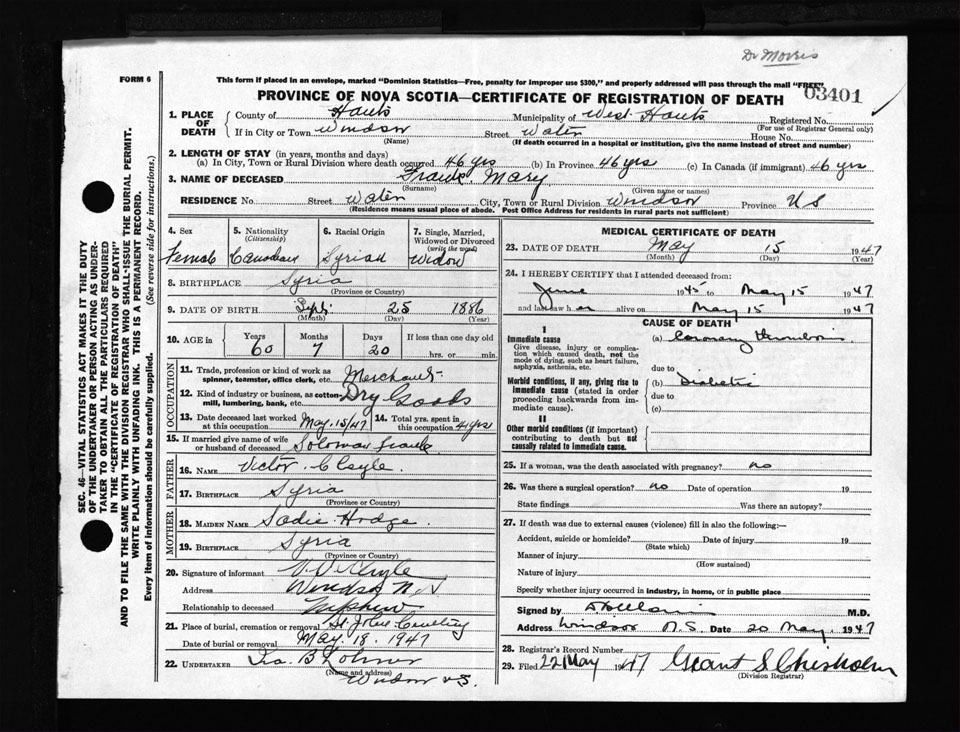 Dr Morris
FORM 6
This form if placed in an envelope, marked "Dominion Statistics—Free, penalty for improper use $300," and properly addressed will pass through the mail "FREE"
03401
PROVINCE OF NOVA SCOTIA—CERTIFICATE OF REGISTRATION OF DEATH
1. PLACE OF DEATH
County of Hants Municipality of West Hants Registered No.
(For use of Registrar General only)
If in City or Town Windsor Street Water House No.
(Name) (If death occurred in a hospital or institution, give the name instead of street and number)
2. LENGTH OF STAY (in years, months and days)
(a) In City, Town or Rural Division where death occurred 46 yrs (b) In Province 46 yrs (c) In Canada (if immigrant) 46 yrs
3. NAME OF DECEASED Frank, Mary
(Surname) (Given name or names)
RESIDENCE No. Street Water City, Town or Rural Division Windsor Province NS
(Residence means usual place of abode. Post Office Address for residents in rural parts not sufficient)
4. Sex Female
5. Nationality (Citizenship) Canadian
6. Racial Origin Syrian
7. Single, Married, Widowed or Divorced (write the word) Widow
8. BIRTHPLACE Syria
(Province or Country)
9. DATE OF BIRTH Sept 25 1886
(Month) (Day) (Year)
10. AGE in Years 60 Months 7 Days 20 If less than one day old hrs. or min.
OCCUPATION
11. Trade, profession or kind of work as spinner, teamster, office clerk, etc. Merchant
12. Kind of industry or business, as cotton-mill, lumbering, bank, etc. Dry Goods
13. Date deceased last worked at this occupation May 15/47
14. Total yrs. spent in this occupation 41 yrs
15. If married give name of wife or husband of deceased Soloman Frank
FATHER
16. NAME Victor Cleyle
17. BIRTHPLACE Syria
(Province or Country)
MOTHER
18. MAIDEN NAME Sadie Hodge
19. BIRTHPLACE Syria
(Province or Country)
20. Signature of informant Cleyle
Address Windsor N.S
Relationship to deceased Nephew
21. Place of burial, cremation or removal St. John Cemetery
Date of burial or removal May 18, 1947
22. UNDERTAKER Ira B Lohnes
(Name and address)
Windsor NS.
MEDICAL CERTIFICATE OF DEATH
23. DATE OF DEATH May 15 1947
(Month) (Day) (Year)
24. I HEREBY CERTIFY that I attended deceased from:
June 1945 to May 15 1947
and last saw h er alive on May 15 1947
CAUSE OF DEATH
I
Immediate cause (a) Coronary Thrombosis
Give disease, injury or complication which caused death, not the mode of dying, such as heart failure, asphyxia, asthenia, etc.
due to
Morbid conditions, if any, giving rise to immediate cause (stated in order proceeding backwards from immediate cause).
(b) Diabetic
due to
(c)
II
Other morbid conditions (if important) contributing to death but not causally related to immediate cause.
25. If a woman, was the death associated with pregnancy? no
26. Was there a surgical operation? no Date of operation 19
State findings Was there an autopsy?
27. If death was due to external causes (violence) fill in also the following:—
Accident, suicide or homicide? Date of injury 19
(State which)
Manner of injury
(How sustained)
Nature of injury
Specify whether injury occurred in industry, in home, or in public place
Signed by M.D.
Address Windsor N.S. Date 20 May, 1947
28. Registrar's Record Number
29. Filed 22 May 1947 Grant S Chisholm
(Division Registrar)
SEC. 46—VITAL STATISTICS ACT MAKES IT THE DUTY
OF THE UNDERTAKER OR PERSON ACTING AS UNDER-
TAKER TO OBTAIN ALL THE PARTICULARS REQUIRED
IN THE "CERTIFICATE OF REGISTRATION OF DEATH"
AND TO FILE THE SAME WITH THE DIVISION REGISTRAR WHO SHALL ISSUE THE BURIAL PERMIT.
WRITE PLAINLY WITH UNFADING INK. THIS IS A PERMANENT RECORD.
Every item of information should be carefully supplied. (See reverse side for instructions.)